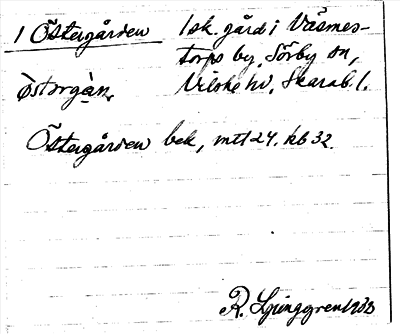 1 Östergården 1 sk. gård i Väsmes-
torps by, Sörby sn,
östərgàn. Vilske hd, Skarab. l.
Östergården bek, mtl 24. kb 32.
R. Ljunggren 1933